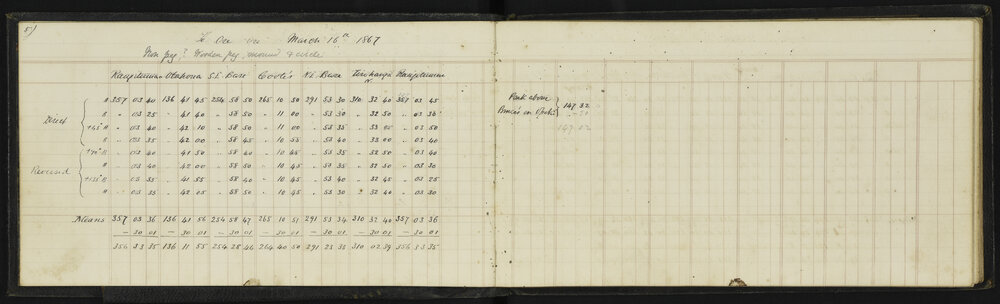 51
Te Ore Ore March 16th 1867
Iron peg? Wooden peg, mound & circle
Rangitumau Otahoua S.E. Base Coote's N.E. Base Rangitumau
A 357 03 40 136 41 45 254 58 50 265 10 50 291 53 30 310 32 40 357 03 45
B " 03 35 - 41 40 . 58 50 . 11 00 . 53 30 . 32 50 . 03 35
Direct
+45° A . 03 40 . 42 10 . 58 50 . 11 00 . 53 35 . 33 00 . 03 50
B . 03 35 . 42 00 . 58 45 . 10 55 . 53 40 . 33 00 . 03 40
+90° B . 03 40 . 41 50 . 58 40 . 10 45 . 53 35 . 32 50 . 03 40
A . 03 40 . 42 00 . 58 50 . 10 45 . 53 35 . 32 30 . 03 30
Reversed
+135° B . 03 35 . 41 55 . 58 40 . 10 45 . 53 35 . 32 45 . 03 25
A . 03 35 . 42 05 . 58 50 . 10 45 . 53 30 . 32 40 . 03 30
Means 357 03 36 136 41 56 254 58 47 265 10 51 291 53 34 310 32 40 357 03 36
— 30 01 — 30 01 — 30 01 — 30 01 — 30 01 — 30 01 — 30 01
356 33 35 136 11 55 254 28 46 264 40 50 291 23 33 310 02 39 356 33 35
Peak above
147 32
147 02